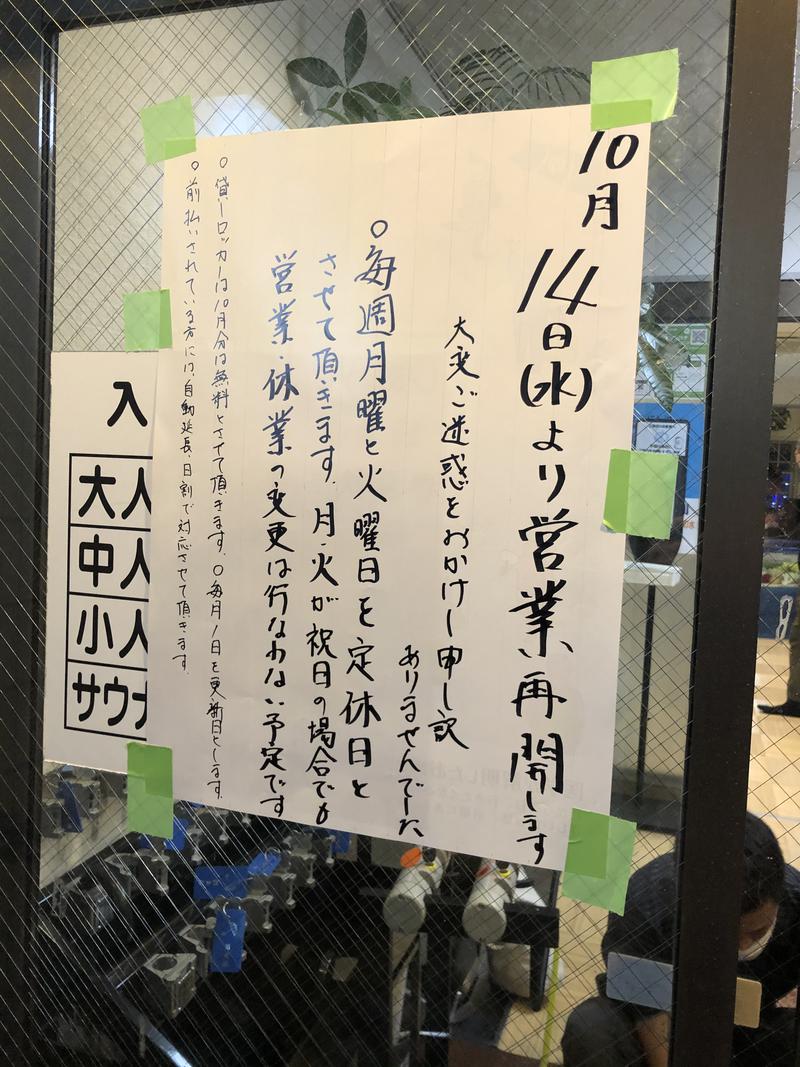 10月14日(水)より営業再開します
大変ご迷惑をおかけし申し訳
ありませんでした
○毎週月曜と火曜日を定休日と
させて頂きます。月・火が祝日の場合でも
営業・休業の変更は行なわない予定です
○貸しロッカーは10月分は無料とさせて頂きます。○毎月1日を更新日とします。
○前払いされている方には、自動延長、日割で対応させて頂きます。
入
大人
中人
小人
サウナ